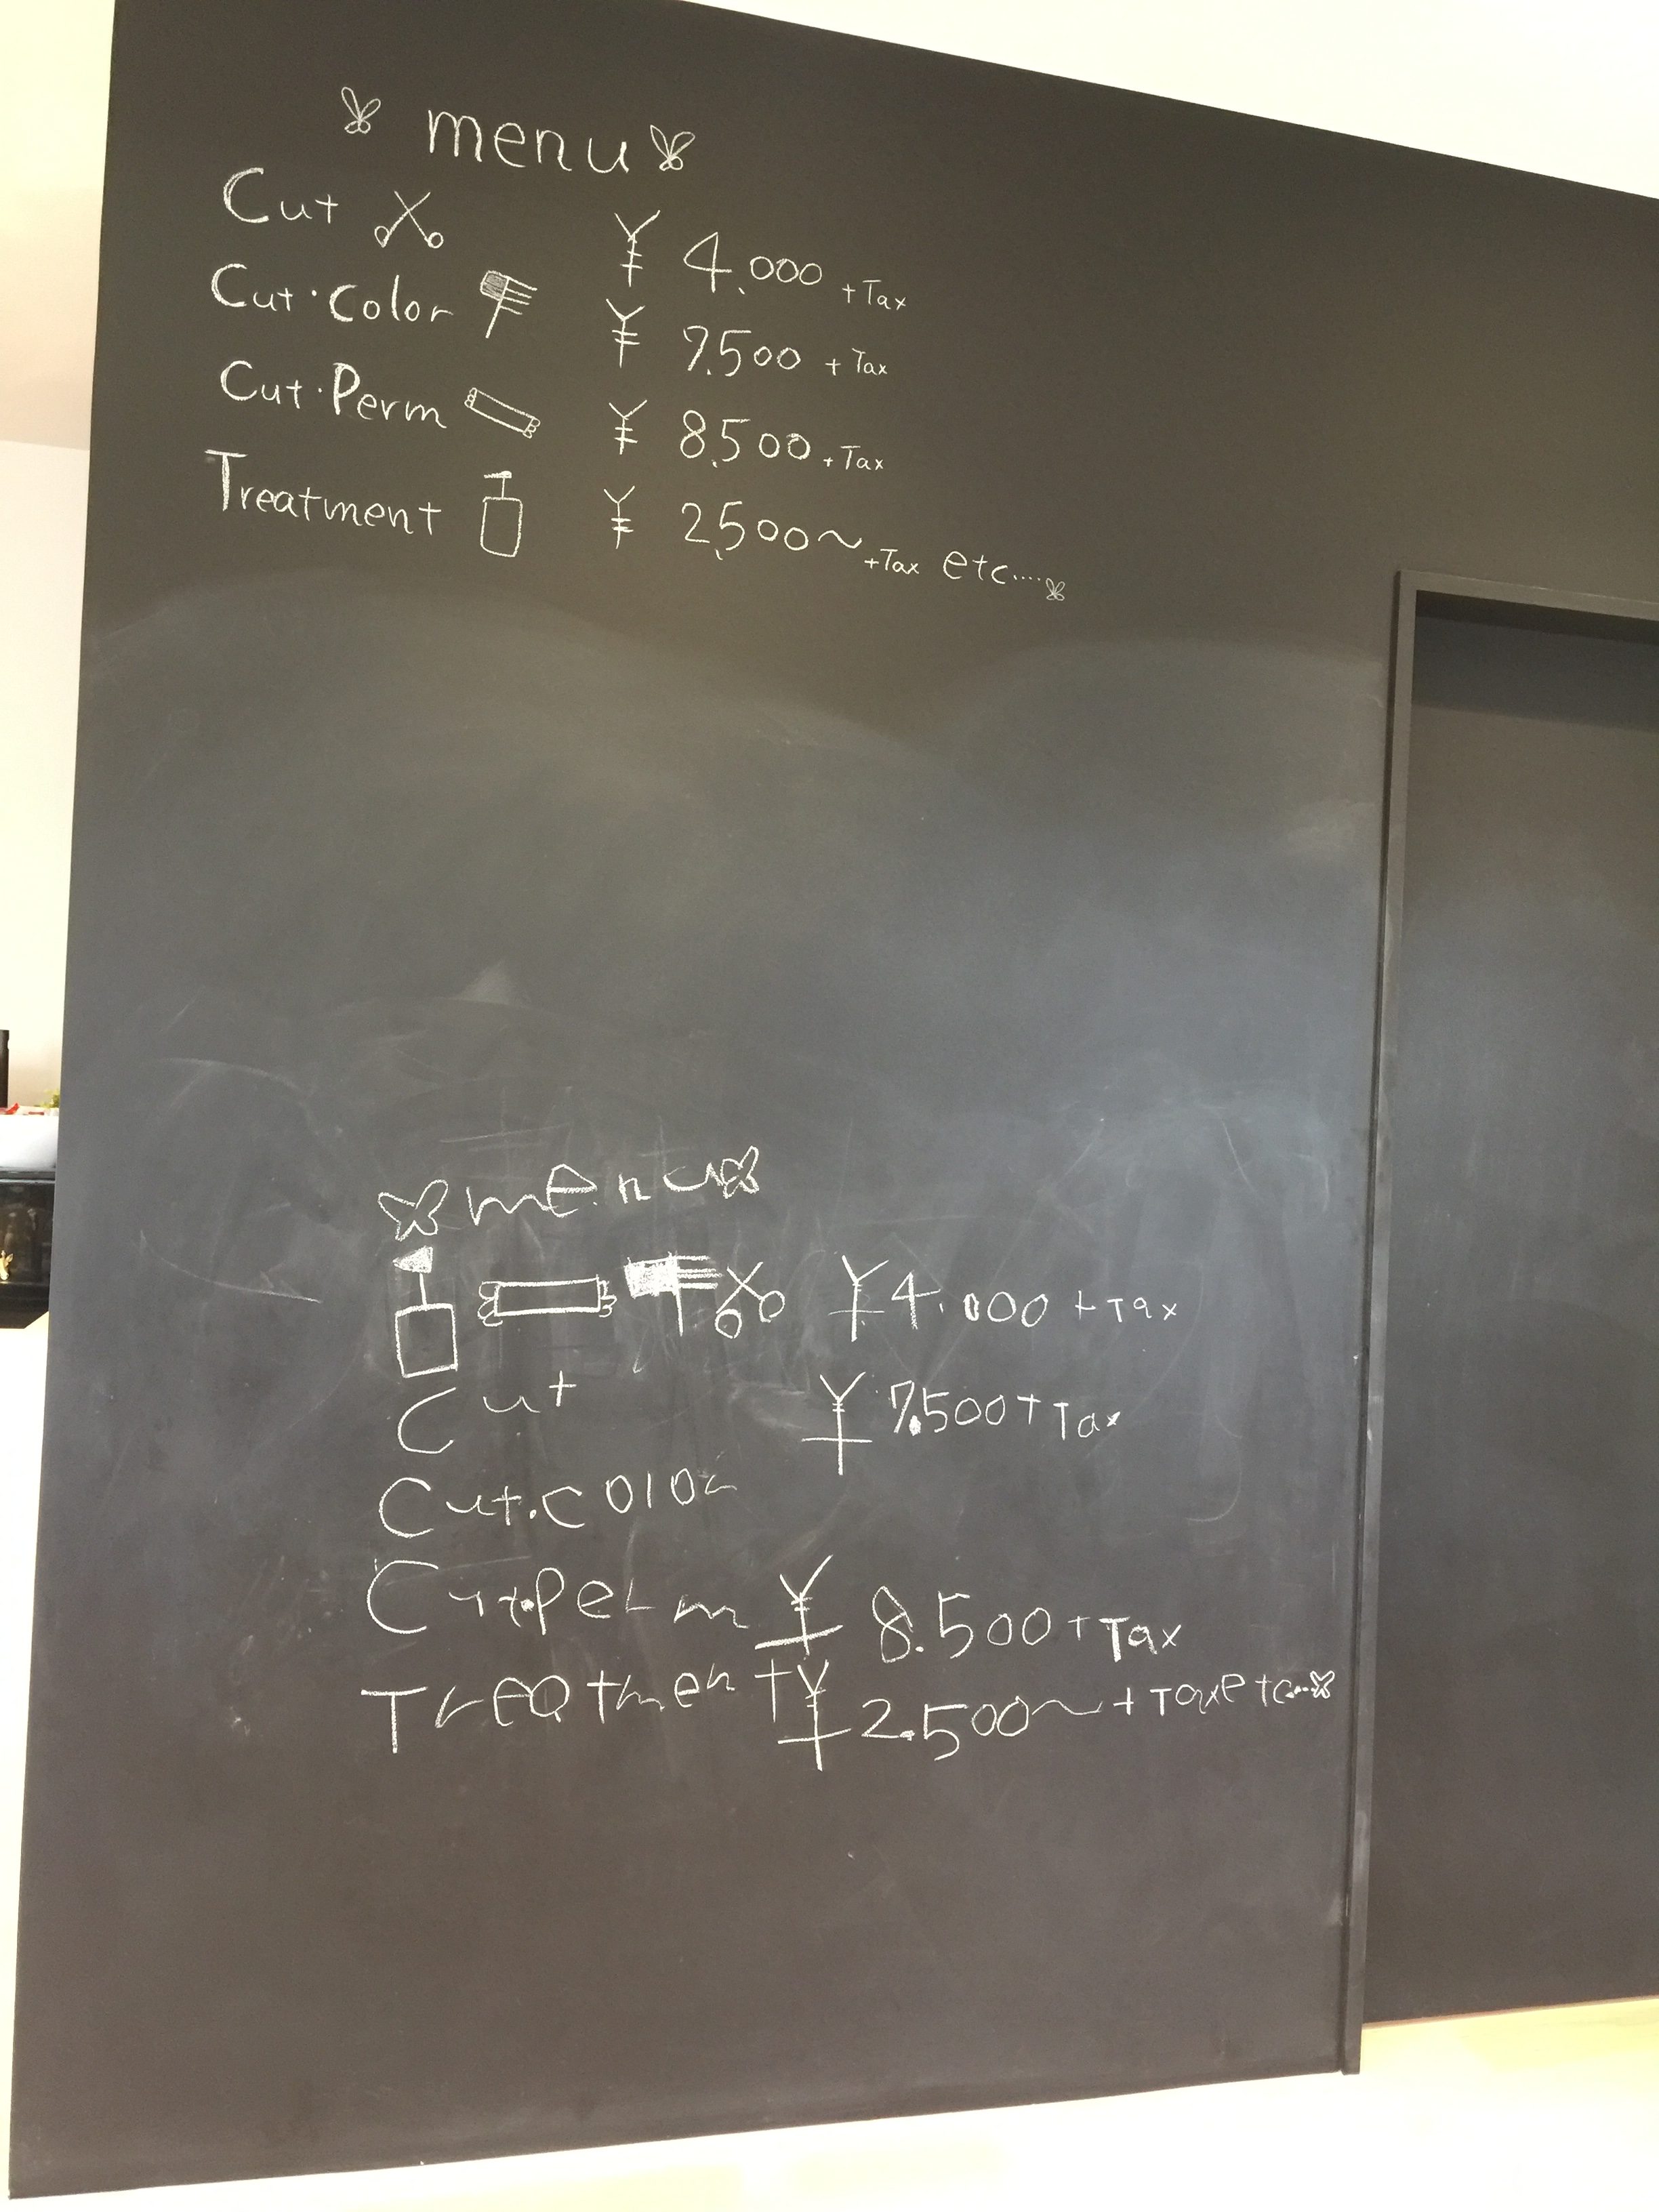 menu
Cut ¥ 4.000 +Tax
Cut・Color ¥ 7.500 +Tax
Cut・Perm ¥ 8.500 +Tax
Treatment ¥ 2.500～ +Tax etc....
menu
¥4.000 +Tax
Cut ¥7.500+Tax
Cut.color
Cut.perm ¥ 8.500+Tax
Treatment ¥2.500～+Taxetc...